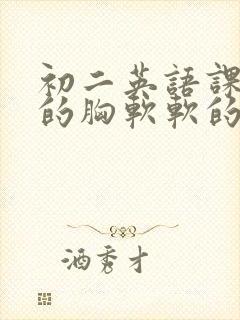 初二英語課
的胸軟軟的
酒秀才